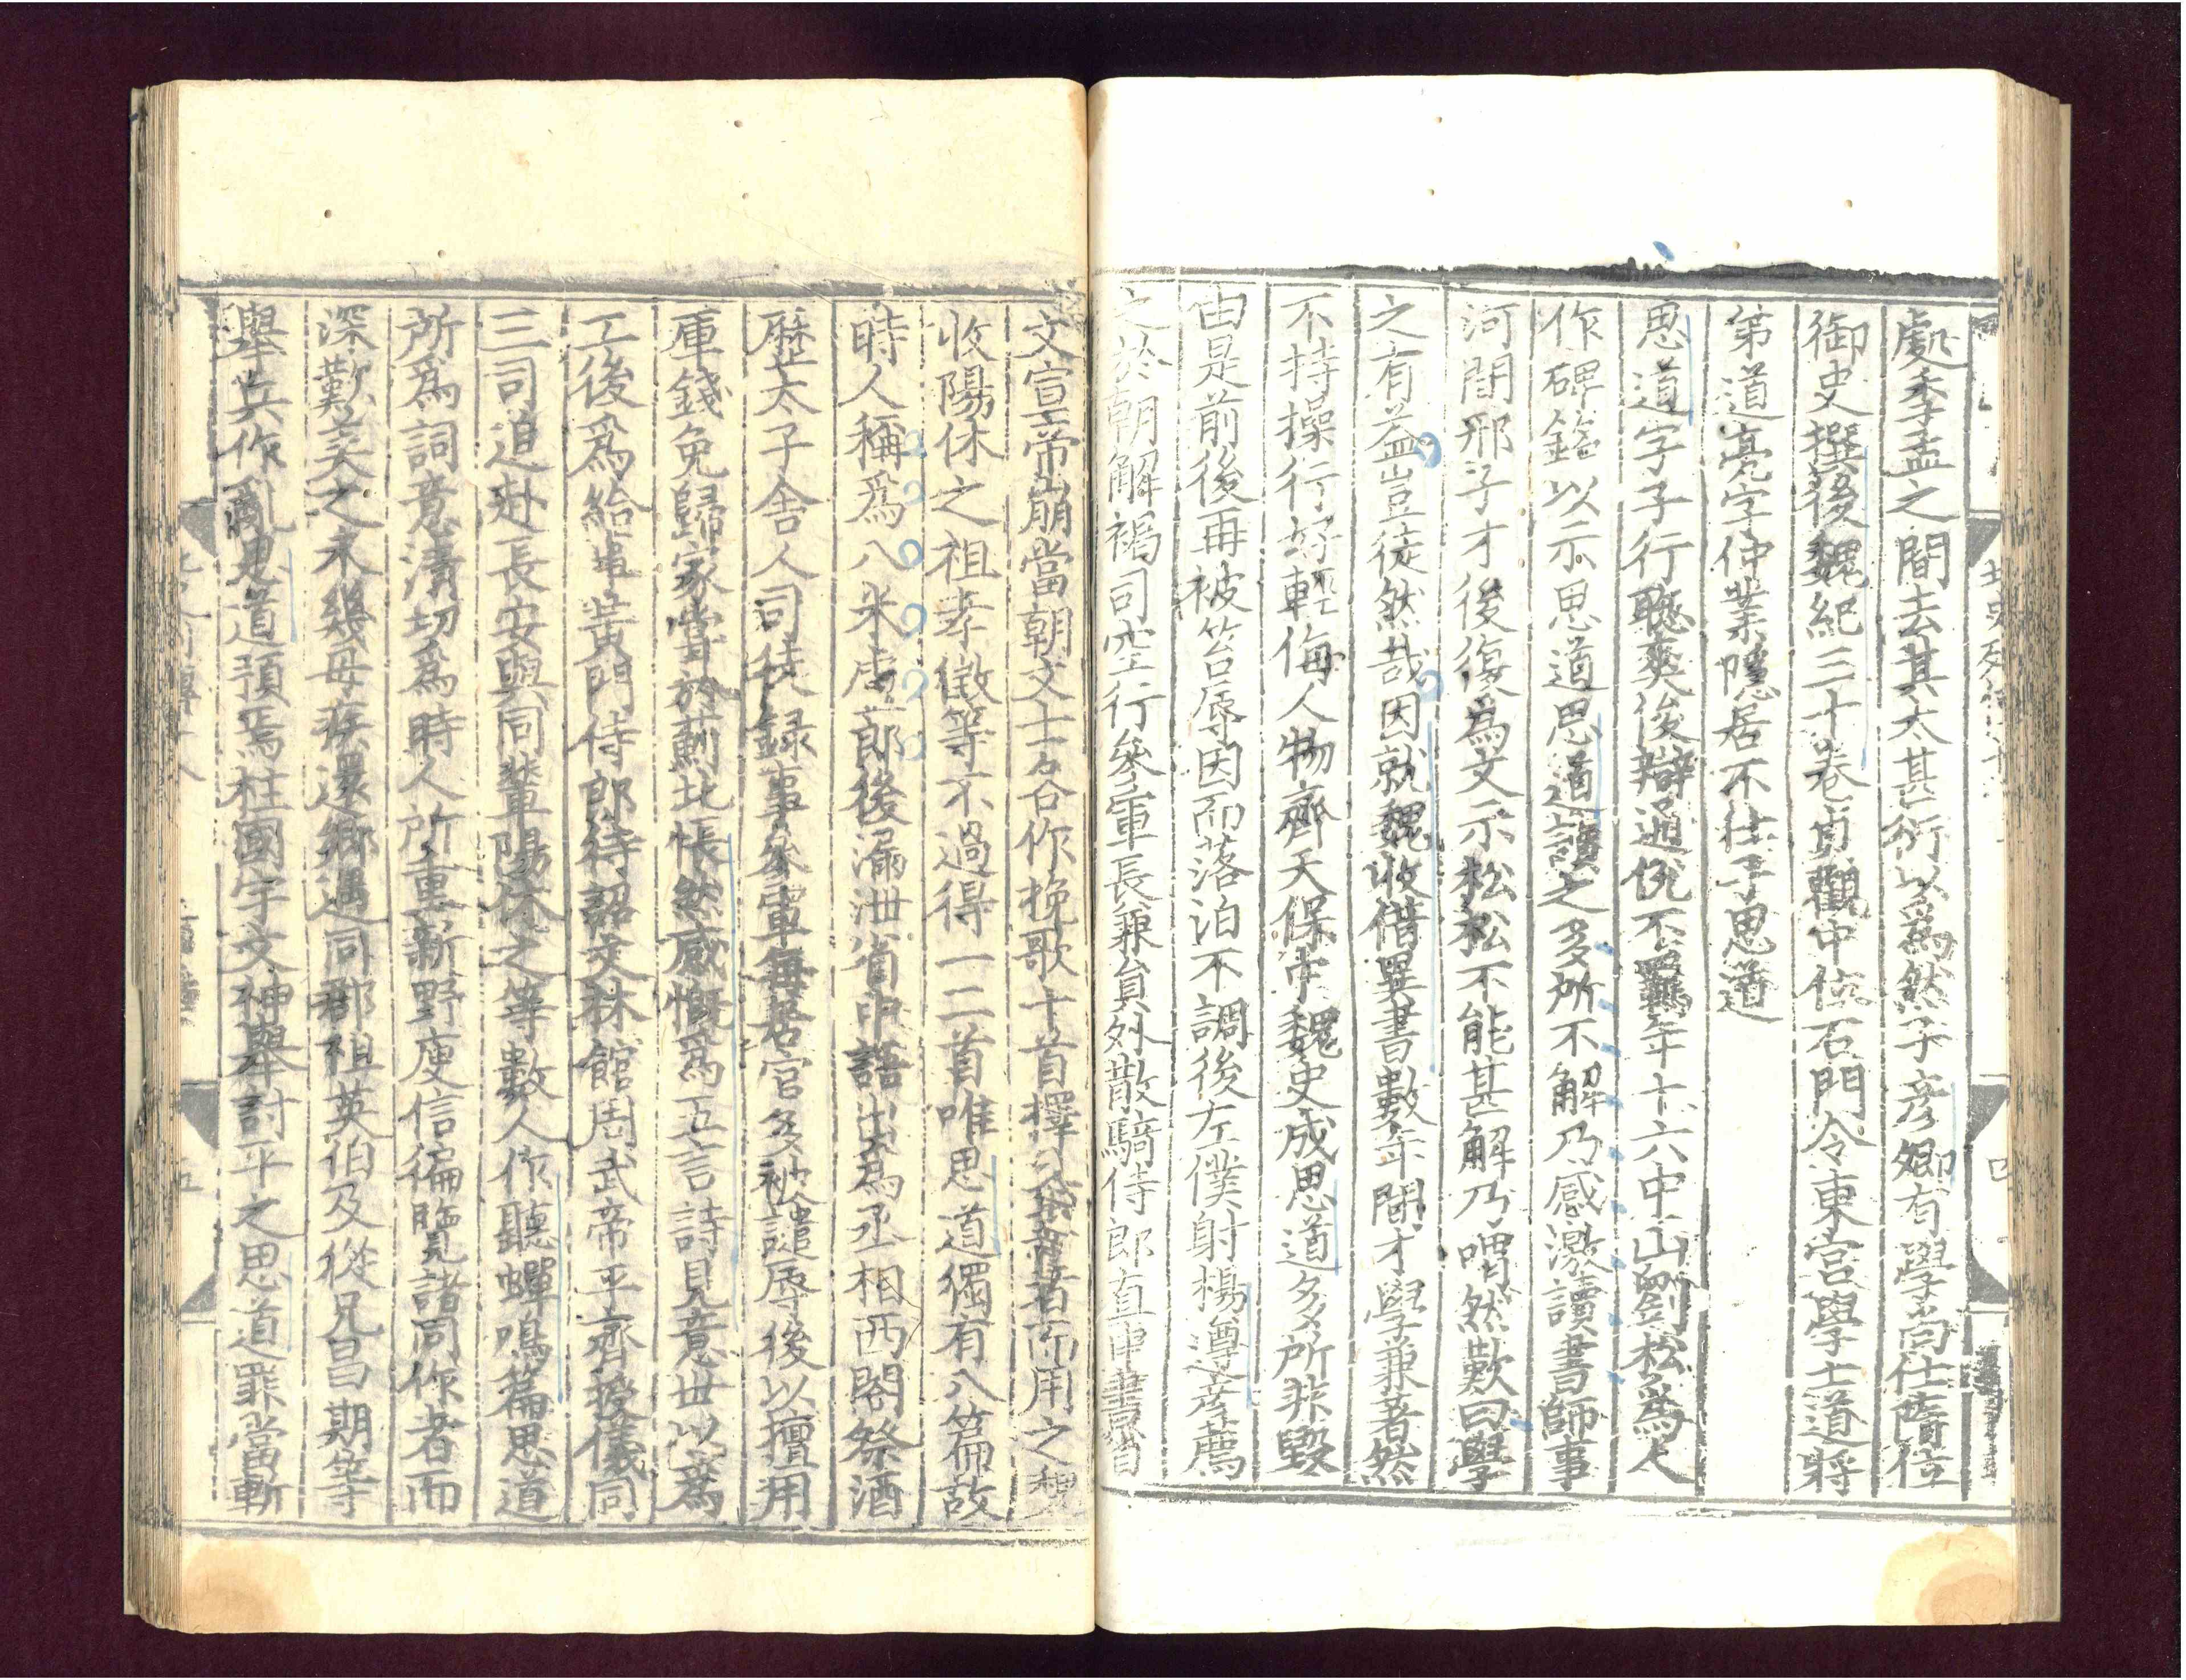 處季孟之間去其太甚衍以爲然子彦卿有學尚仕隋位
御史撰後魏紀三十卷貞觀中位石門令東宮學士道將
第道亮字仲業隱居不仕子思道
思道字子行聰爽俊辯通侻不羈年十六中山劉松爲人
作碑銘以示思道思道讀之多所不解乃感激讀書師事
河間邢子才後復爲文示松松不能甚解乃喟然歎曰學
之有益豈徒然哉因就魏收借異書數年間才學兼著然
不持操行好輕侮人物齊天保中魏史成思道多所非毀
由是前後再被笞辱因而落泊不調後左僕射楊遵彦薦
之於朝解褐司空行參軍長兼員外散騎侍郎直中書省
文宣帝崩當朝文士各作挽歌十首擇其善者而用之魏
收陽休之祖孝徵等不過得一二首唯思道獨有八篇故
時人稱爲八米盧郎後漏泄省中語出爲丞相西閤祭酒
歷太子舍人司徒録事參軍每居官多被譴辱後以擅用
庫錢免歸家嘗於薊北悵然感慨爲五言詩見意世以爲
工後爲給事黄門侍郎待詔文林館周武帝平齊授儀同
三司追赴長安與同輩陽休之等數人作聽蟬鳴篇思道
所爲詞意清切爲時人所重新野庾信徧覽諸同作者而
深歎美之未幾母疾還鄉遇同郡祖英伯及從兄昌期等
舉兵作亂思道預焉柱國宇文神舉討平之思道罪當斬